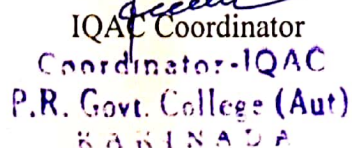 IQAC Coordinator
Coordinator-IQAC
P.R. Govt. College (Aut)
KAKINADA